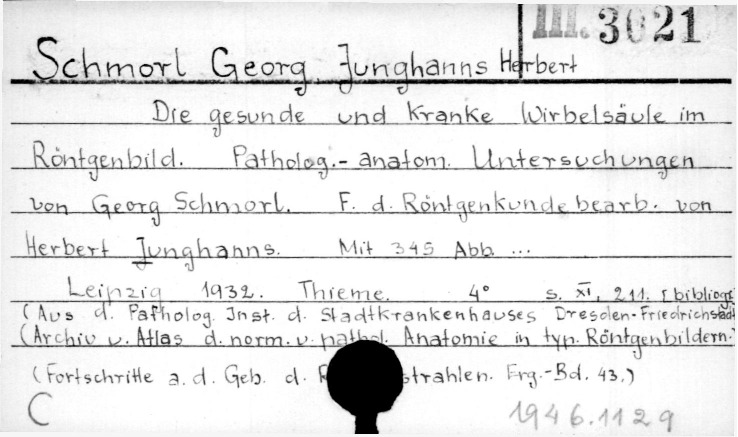 III. 3021
Schmorl Georg, Junghanns Herbert
Die gesunde und kranke Wirbelsäule im
Röntgenbild. Patholog.- anatom. Untersuchungen
von Georg Schmorl. F. d. Röntgenkunde bearb. von
Herbert Junghanns. Mit 345 Abb. ...
Leipzig 1932. Thieme. 4° s. XI, 211. [bibliogr.
(Aus d. Patholog. Inst. d. Stadtkrankenhauses Dresden-Friedrichstadt
(Archiv u. Atlas d. norm. u. pathol. Anatomie in typ. Röntgenbildern.)
(Fortschritte a. d. Geb. d. strahlen. Erg.-Bd. 43.)
C 1946.1129